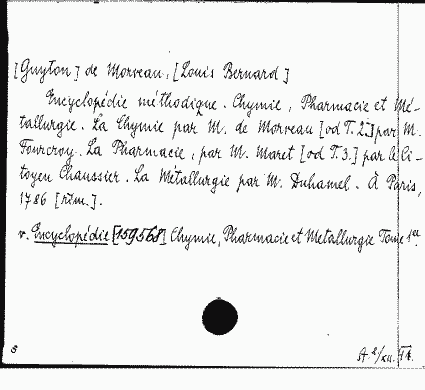 [Guyton] de Morveau, [Louis Bernard]
Encyclopédie méthodique. Chymie, Pharmacie et Mé-
tallurgie. La Chymie par M. de Morveau [od T. 2.] par M.
Fourcroy. La Pharmacie, par M. Maret [od T. 3.] par le Ci-
toyen Chaussier. La Métallurgie par M. Duhamel. À Paris,
1786 [rzm.].
v. Encyclopédie [159568] Chymie, Pharmacie et Metallurgie Tome 1er.